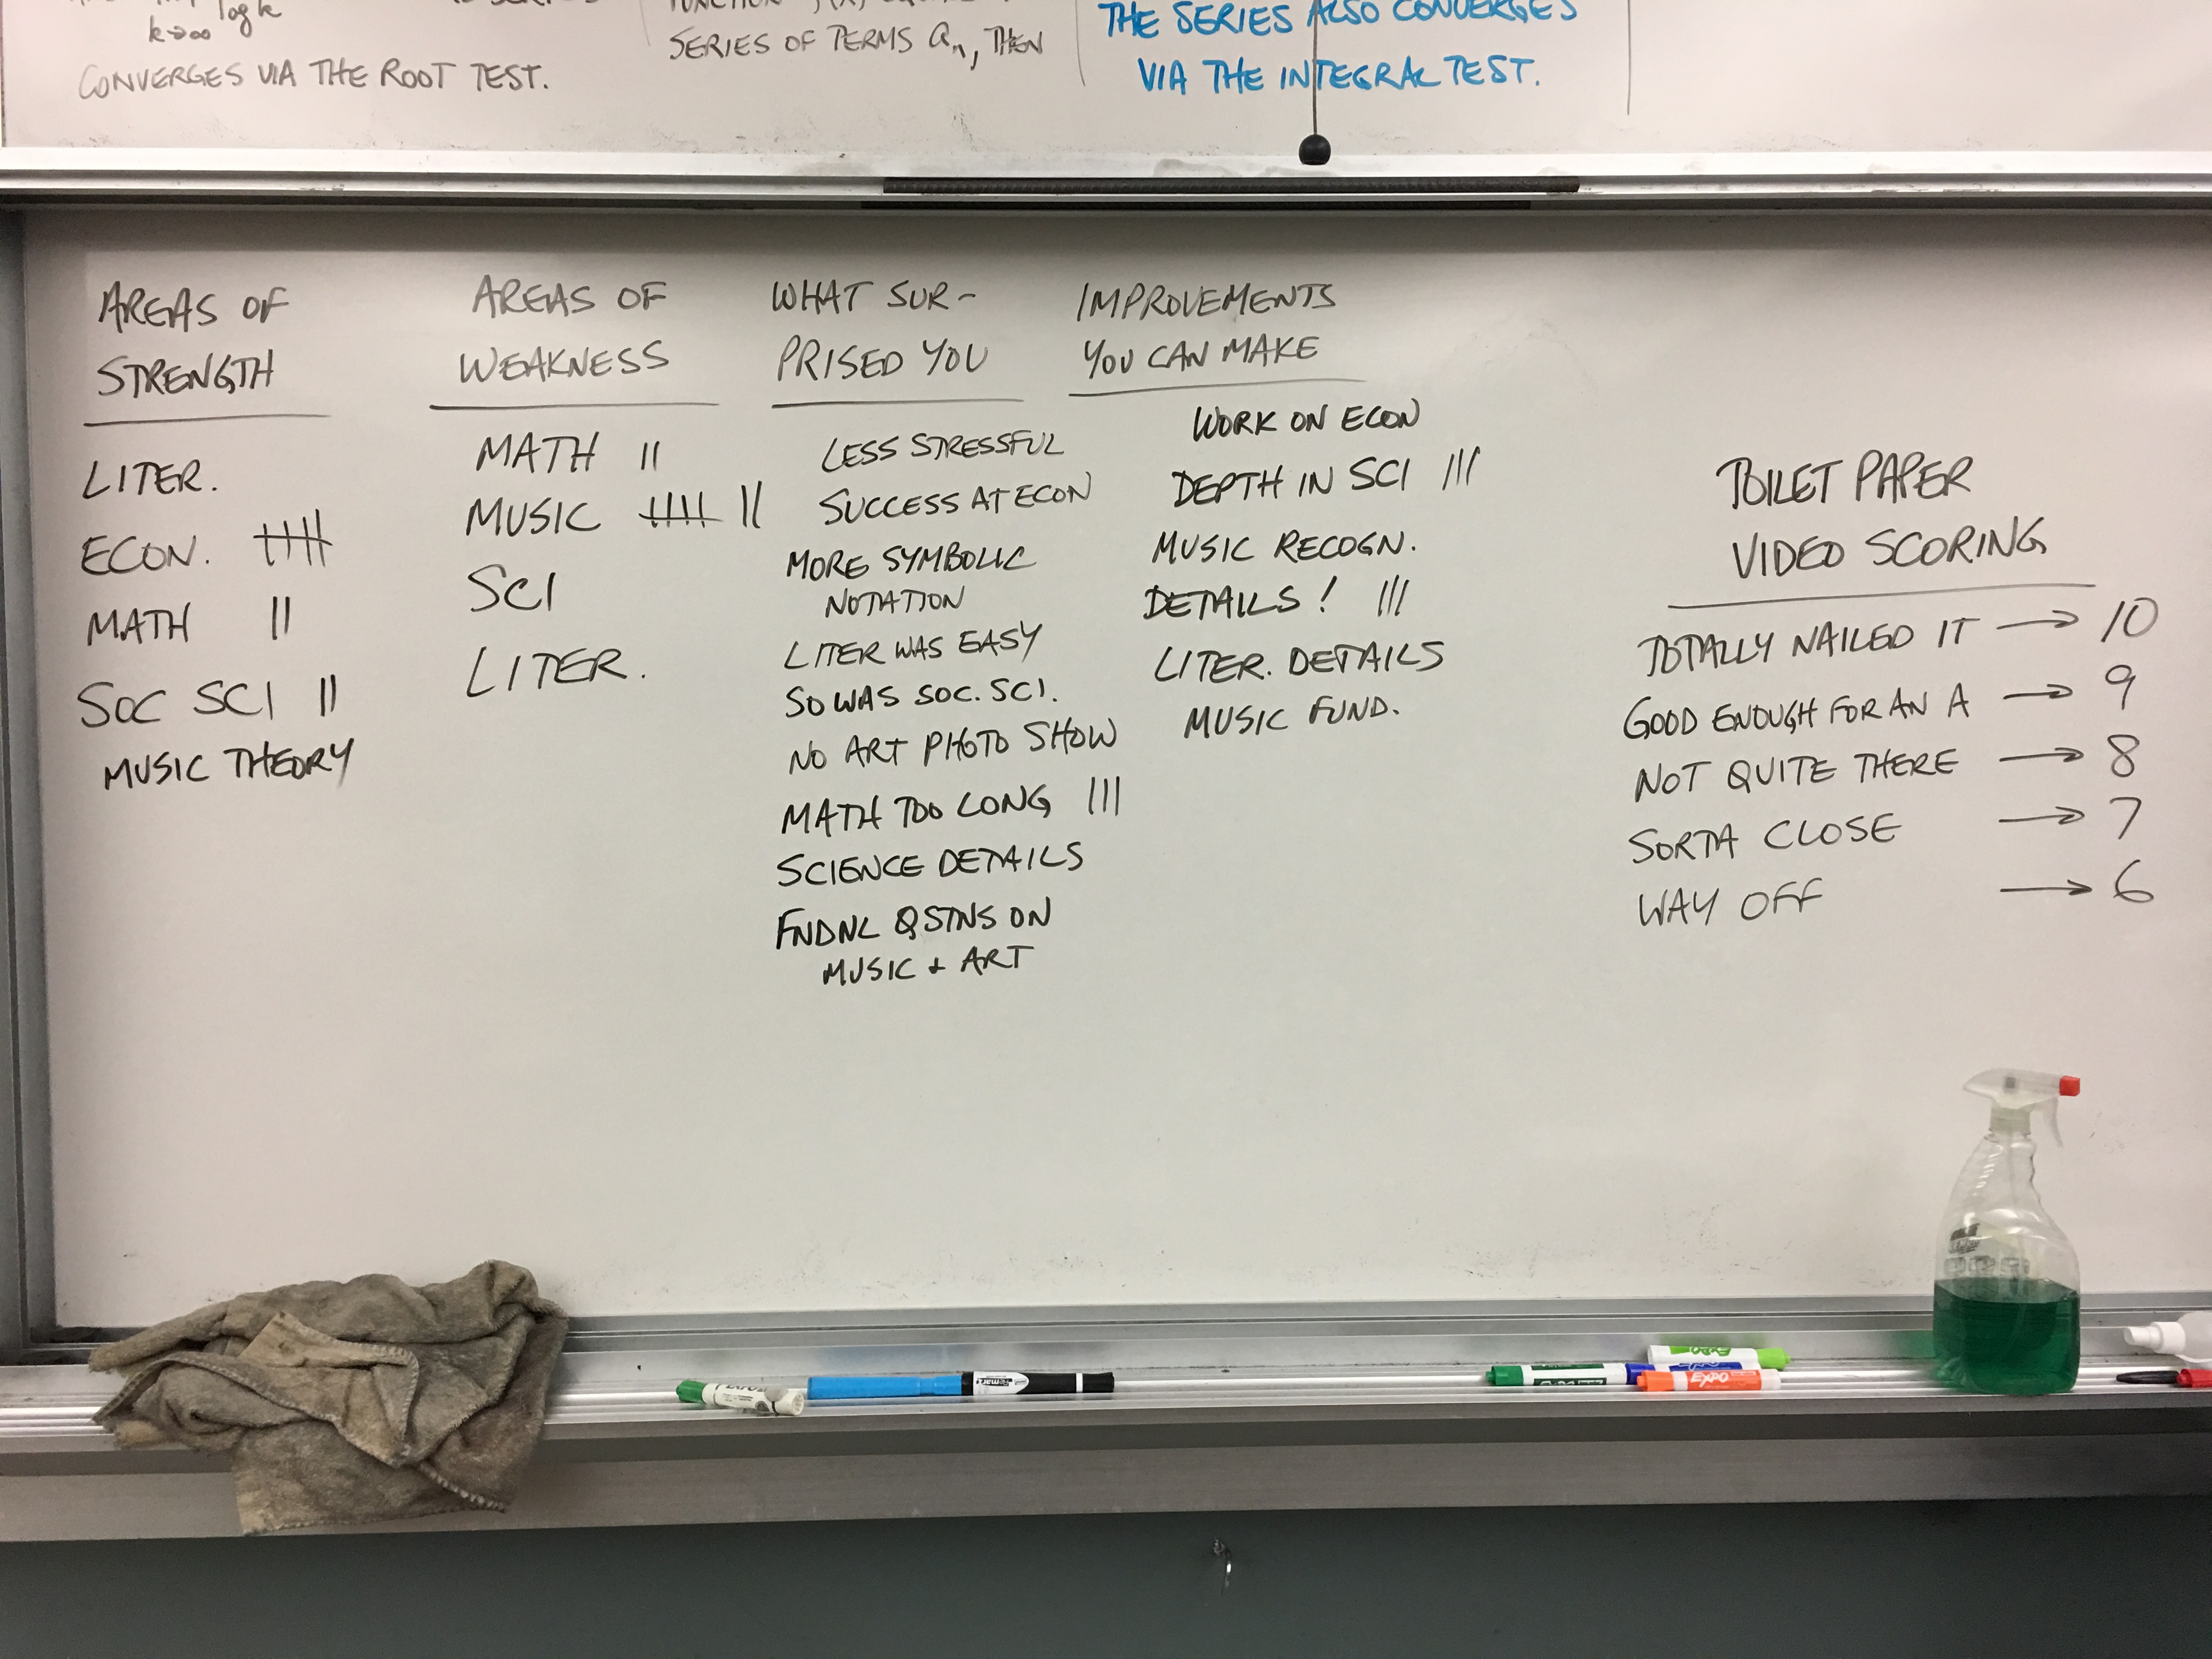 log k
k→∞
CONVERGES VIA THE ROOT TEST.
SERIES OF TERMS aₙ, THEN
THE SERIES ALSO CONVERGES
VIA THE INTEGRAL TEST.
AREAS OF
STRENGTH
LITER.
ECON. 𝍸
MATH ||
SOC SCI ||
MUSIC THEORY
AREAS OF
WEAKNESS
MATH ||
MUSIC 𝍸 ||
SCI
LITER.
WHAT SUR-
PRISED YOU
LESS STRESSFUL
SUCCESS AT ECON
MORE SYMBOLIC
NOTATION
LITER WAS EASY
SO WAS SOC. SCI.
NO ART PHOTO SHOW
MATH TOO LONG |||
SCIENCE DETAILS
FNDNL QSTNS ON
MUSIC + ART
IMPROVEMENTS
YOU CAN MAKE
WORK ON ECON
DEPTH IN SCI |||
MUSIC RECOGN.
DETAILS! |||
LITER. DETAILS
MUSIC FUND.
TOILET PAPER
VIDEO SCORING
TOTALLY NAILED IT → 10
GOOD ENOUGH FOR AN A → 9
NOT QUITE THERE → 8
SORTA CLOSE → 7
WAY OFF → 6
EXPO